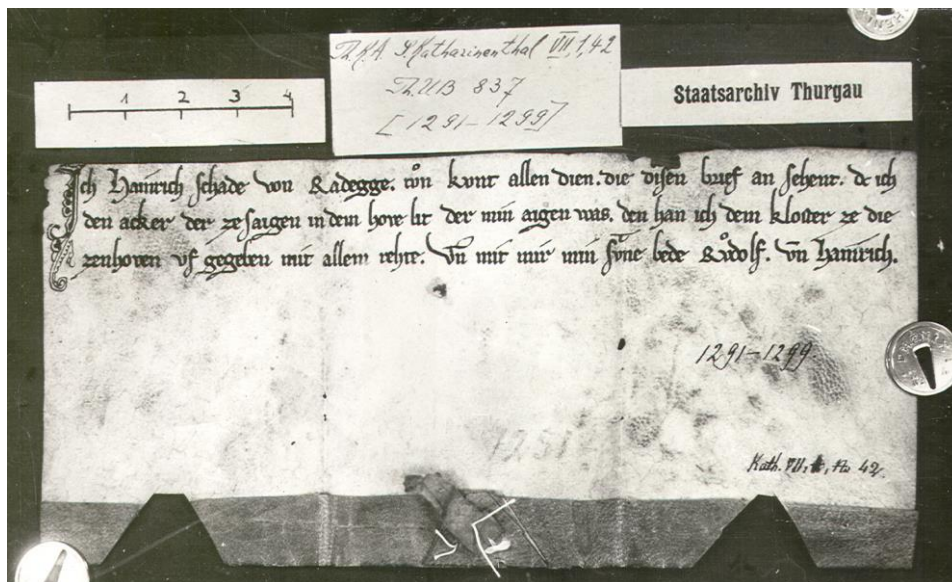 Th.K.A. St. Katharinenthal VII,1,42
Th.U.B 837
[1291-1299]
1 2 3 4
Staatsarchiv Thurgau
Ich Hainrich schade von Radegge. tůn kvnt allen dien. die disen brief an sehent. dc ich
den acker der ze saigen in dem hove lit der min aigen was. den han ich dem kloster ze die
zenhoven vf gegeben mit allem rehte. Vn̄ mit mir min svͤne bede Rv̊dolf. vn̄ Hainrich.
1291-1299.
1251
Kath. VII, No 42